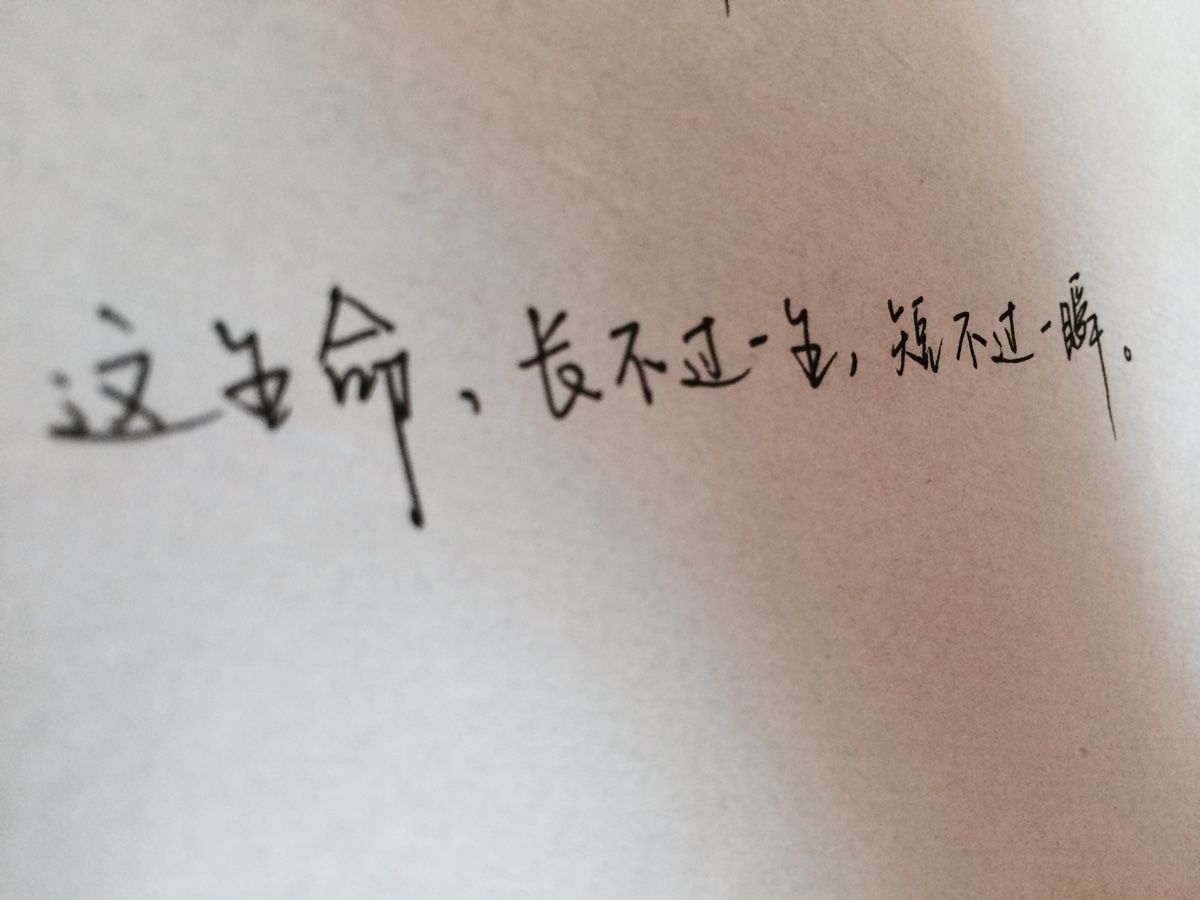 这生命、长不过一生,短不过一瞬。